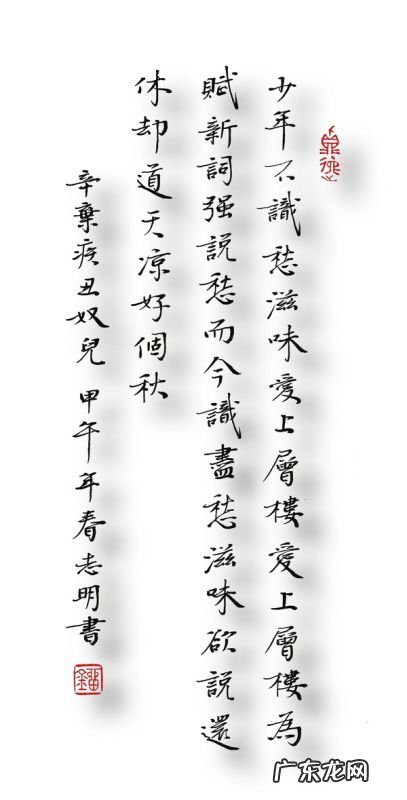 少年不識愁滋味愛上層樓愛上層樓為
賦新詞强說愁而今識盡愁滋味欲說還
休却道天凉好個秋
辛棄疾丑奴兒 甲午年春志明書
广东龙网